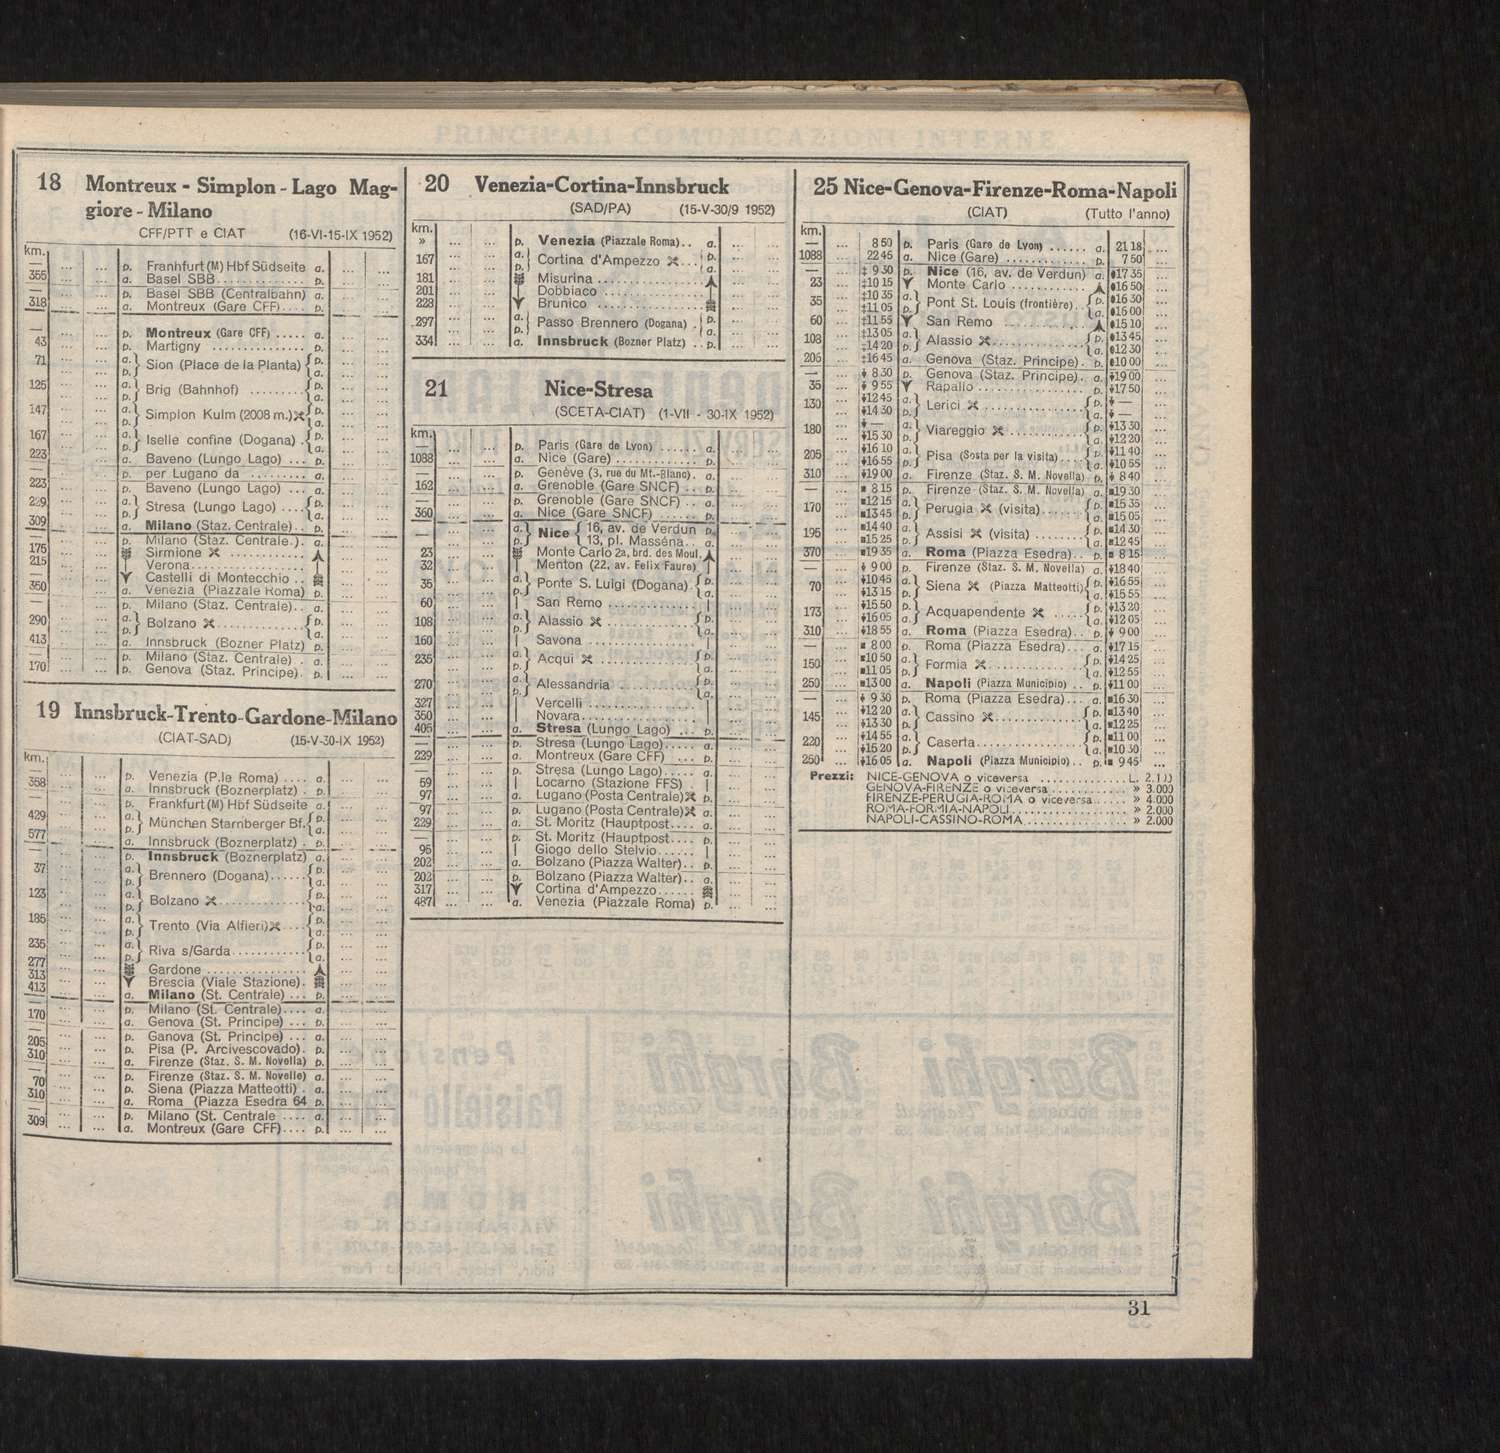 18 Montreux - Simplon - Lago Mag-
giore - Milano
CFF/PTT e CIAT (16-VI-15-IX 1952)
km.
— ... ... p. Franhfurt (M) Hbf Südseite a. ... ...
355 ... ... a. Basel SBB p. ... ...
— ... ... p. Basel SBB (Centralbahn) a. ... ...
318 ... ... a. Montreux (Gare CFF) p. ... ...
— ... ... p. Montreux (Gare CFF) a. ... ...
43 ... ... p. Martigny p. ... ...
71 ... ... a. p. } Sion (Place de la Planta) { p. a. ... ...
125 ... ... a. p. } Brig (Bahnhof) { p. a. ... ...
147 ... ... a. p. } Simplon Kulm (2008 m.) { p. a. ... ...
167 ... ... a. p. } Iselle confine (Dogana) { p. a. ... ...
223 ... ... a. Baveno (Lungo Lago) ... p. ... ...
— ... ... p. per Lugano da a. ... ...
223 ... ... p. Baveno (Lungo Lago) ... a. ... ...
229 ... ... a. p. } Stresa (Lungo Lago) { p. a. ... ...
309 ... ... a. Milano (Staz. Centrale) p. ... ...
— ... ... p. Milano (Staz. Centrale.) a. ... ...
175 ... ... Sirmione
215 ... ... Verona
— ... ... Castelli di Montecchio
350 ... ... a. Venezia (Piazzale Roma) p. ... ...
— ... ... p. Milano (Staz. Centrale) a. ... ...
290 ... ... a. p. } Bolzano { p. a. ... ...
413 ... ... a. Innsbruck (Bozner Platz) p. ... ...
— ... ... p. Milano (Staz. Centrale) a. ... ...
170 ... ... a. Genova (Staz. Principe) p. ... ...
19 Innsbruck-Trento-Gardone-Milano
(CIAT-SAD) (15-V-30-IX 1952)
km.
— ... ... p. Venezia (P.le Roma) .... a. ... ...
358 ... ... a. Innsbruck (Boznerplatz) p. ... ...
— ... ... p. Frankfurt (M) Hbf Südseite a. ... ...
429 ... ... a. p. } München Starnberger Bf. { p. a. ... ...
577 ... ... a. Innsbruck (Boznerplatz) p. ... ...
— ... ... p. Innsbruck (Boznerplatz) a. ... ...
37 ... ... a. p. } Brennero (Dogana) { p. a. ... ...
123 ... ... a. p. } Bolzano { p. a. ... ...
185 ... ... a. p. } Trento (Via Alfieri) { p. a. ... ...
235 ... ... a. p. } Riva s/Garda { p. a. ... ...
277 ... ... Gardone
313 ... ... Brescia (Viale Stazione)
413 ... ... a. Milano (St. Centrale) ... p. ... ...
— ... ... p. Milano (St. Centrale) .... a. ... ...
170 ... ... a. Genova (St. Principe) ... p. ... ...
— ... ... p. Ganova (St. Principe) ... a. ... ...
205 ... ... p. Pisa (P. Arcivescovado) p. ... ...
310 ... ... a. Firenze (Staz. S. M. Novella) p. ... ...
— ... ... p. Firenze (Staz. S. M. Novelle) a. ... ...
70 ... ... p. Siena (Piazza Matteotti) a. ... ...
310 ... ... a. Roma (Piazza Esedra 64 p. ... ...
— ... ... p. Milano (St. Centrale .... a. ... ...
309 ... ... a. Montreux (Gare CFF) .... p. ... ...
20 Venezia-Cortina-Innsbruck
(SAD/PA) (15-V-30/9 1952)
km.
» ... ... p. Venezia (Piazzale Roma) .. a. ... ...
167 ... ... a. p. } Cortina d'Ampezzo { p. a. ... ...
181 ... ... Misurina
201 ... ... Dobbiaco
228 ... ... Brunico
297 ... ... a. p. } Passo Brennero (Dogana) { p. a. ... ...
334 ... ... a. Innsbruck (Bozner Platz) .. p. ... ...
21 Nice-Stresa
(SCETA-CIAT) (1-VII - 30-IX 1952)
km.
— ... ... p. Paris (Gare de Lyon) a. ... ...
1088 ... ... a. Nice (Gare) p. ... ...
— ... ... p. Genève (3, rue du Mt.-Blanc) a. ... ...
162 ... ... a. Grenoble (Gare SNCF) .. p. ... ...
— ... ... p. Grenoble (Gare SNCF) .. a. ... ...
360 ... ... a. Nice (Gare SNCF) p. ... ...
— ... ... a. p. } Nice { 16, av. de Verdun p.
13, pl. Masséna .. a. ... ...
23 ... ... Monte Carlo 2a, brd. des Moul.
32 ... ... Menton (22, av. Felix Faure)
35 ... ... a. p. } Ponte S. Luigi (Dogana) { p. a. ... ...
60 ... ... San Remo
108 ... ... a. p. } Alassio { p. a. ... ...
160 ... ... Savona
235 ... ... a. p. } Acqui { p. a. ... ...
270 ... ... a. p. } Alessandria { p. a. ... ...
327 ... ... Vercelli
350 ... ... Novara
405 ... ... a. Stresa (Lungo Lago) ... p. ... ...
— ... ... p. Stresa (Lungo Lago) a. ... ...
229 ... ... a. Montreux (Gare CFF) ... p. ... ...
— ... ... p. Stresa (Lungo Lago) a. ... ...
59 ... ... Locarno (Stazione FFS)
97 ... ... a. Lugano (Posta Centrale) p. ... ...
97 ... ... p. Lugano (Posta Centrale) a. ... ...
229 ... ... a. St. Moritz (Hauptpost .... p. ... ...
— ... ... p. St. Moritz (Hauptpost .... p. ... ...
95 ... ... Giogo dello Stelvio
202 ... ... a. Bolzano (Piazza Walter) .. p. ... ...
202 ... ... p. Bolzano (Piazza Walter) .. a. ... ...
317 ... ... Cortina d'Ampezzo
487 ... ... a. Venezia (Piazzale Roma) p. ... ...
25 Nice-Genova-Firenze-Roma-Napoli
(CIAT) (Tutto l'anno)
km.
— ... 8 50 p. Paris (Gare de Lyon) a. 21 18 ...
1088 ... 22 45 a. Nice (Gare) p. 7 50 ...
— ... ‡ 9 30 p. Nice (16, av. de Verdun) a. 17 35 ...
23 ... ‡10 15 Monte Carlo 16 50 ...
35 ... ‡10 35 ‡11 05 a. p. } Pont St. Louis (frontière) { p. a. 16 30 16 00 ...
60 ... ‡11 55 San Remo 15 10 ...
108 ... ‡13 05 ‡14 20 a. p. } Alassio { p. a. 13 45 12 30 ...
206 ... ‡16 45 a. Genova (Staz. Principe) p. 10 00 ...
— ... 8 30 p. Genova (Staz. Principe) a. 19 00 ...
35 ... 9 55 Rapallo 17 50 ...
130 ... 12 45 14 30 a. p. } Lerici { p. a. — — ...
180 ... — 15 30 a. p. } Viareggio { p. a. 13 30 12 20 ...
205 ... 16 10 16 55 a. p. } Pisa (Sosta per la visita) { p. a. 11 40 10 55 ...
310 ... 19 00 a. Firenze (Staz. S. M. Novella) p. 8 40 ...
— ... 8 15 p. Firenze (Staz. S. M. Novella) a. 19 30 ...
170 ... 12 15 13 45 a. p. } Perugia (visita) { p. a. 15 35 15 05 ...
195 ... 14 40 15 25 a. p. } Assisi (visita) { p. a. 14 30 12 45 ...
370 ... 19 35 a. Roma (Piazza Esedra) .. p. 8 15 ...
— ... 9 00 p. Firenze (Staz. S. M. Novella) a. 18 40 ...
70 ... 10 45 13 15 a. p. } Siena (Piazza Matteotti) { p. a. 16 55 15 55 ...
173 ... 15 50 16 05 a. p. } Acquapendente { p. a. 13 20 12 05 ...
310 ... 18 55 a. Roma (Piazza Esedra) .. p. 9 00 ...
— ... 8 00 p. Roma (Piazza Esedra) ... a. 17 15 ...
150 ... 10 50 11 05 a. p. } Formia { p. a. 14 25 12 55 ...
250 ... 13 00 a. Napoli (Piazza Municipio) .. p. 11 00 ...
— ... 9 30 p. Roma (Piazza Esedra) ... a. 16 30 ...
145 ... 12 20 13 30 a. p. } Cassino { p. a. 13 40 12 25 ...
220 ... 14 55 15 20 a. p. } Caserta { p. a. 11 00 10 30 ...
250 ... 16 05 a. Napoli (Piazza Municipio) .. p. 9 45 ...
Prezzi: NICE-GENOVA o viceversa L.
GENOVA-FIRENZE o viceversa » 3.000
FIRENZE-PERUGIA-ROMA o viceversa » 4.000
ROMA-FORMIA-NAPOLI » 2.000
NAPOLI-CASSINO-ROMA » 2.000
31